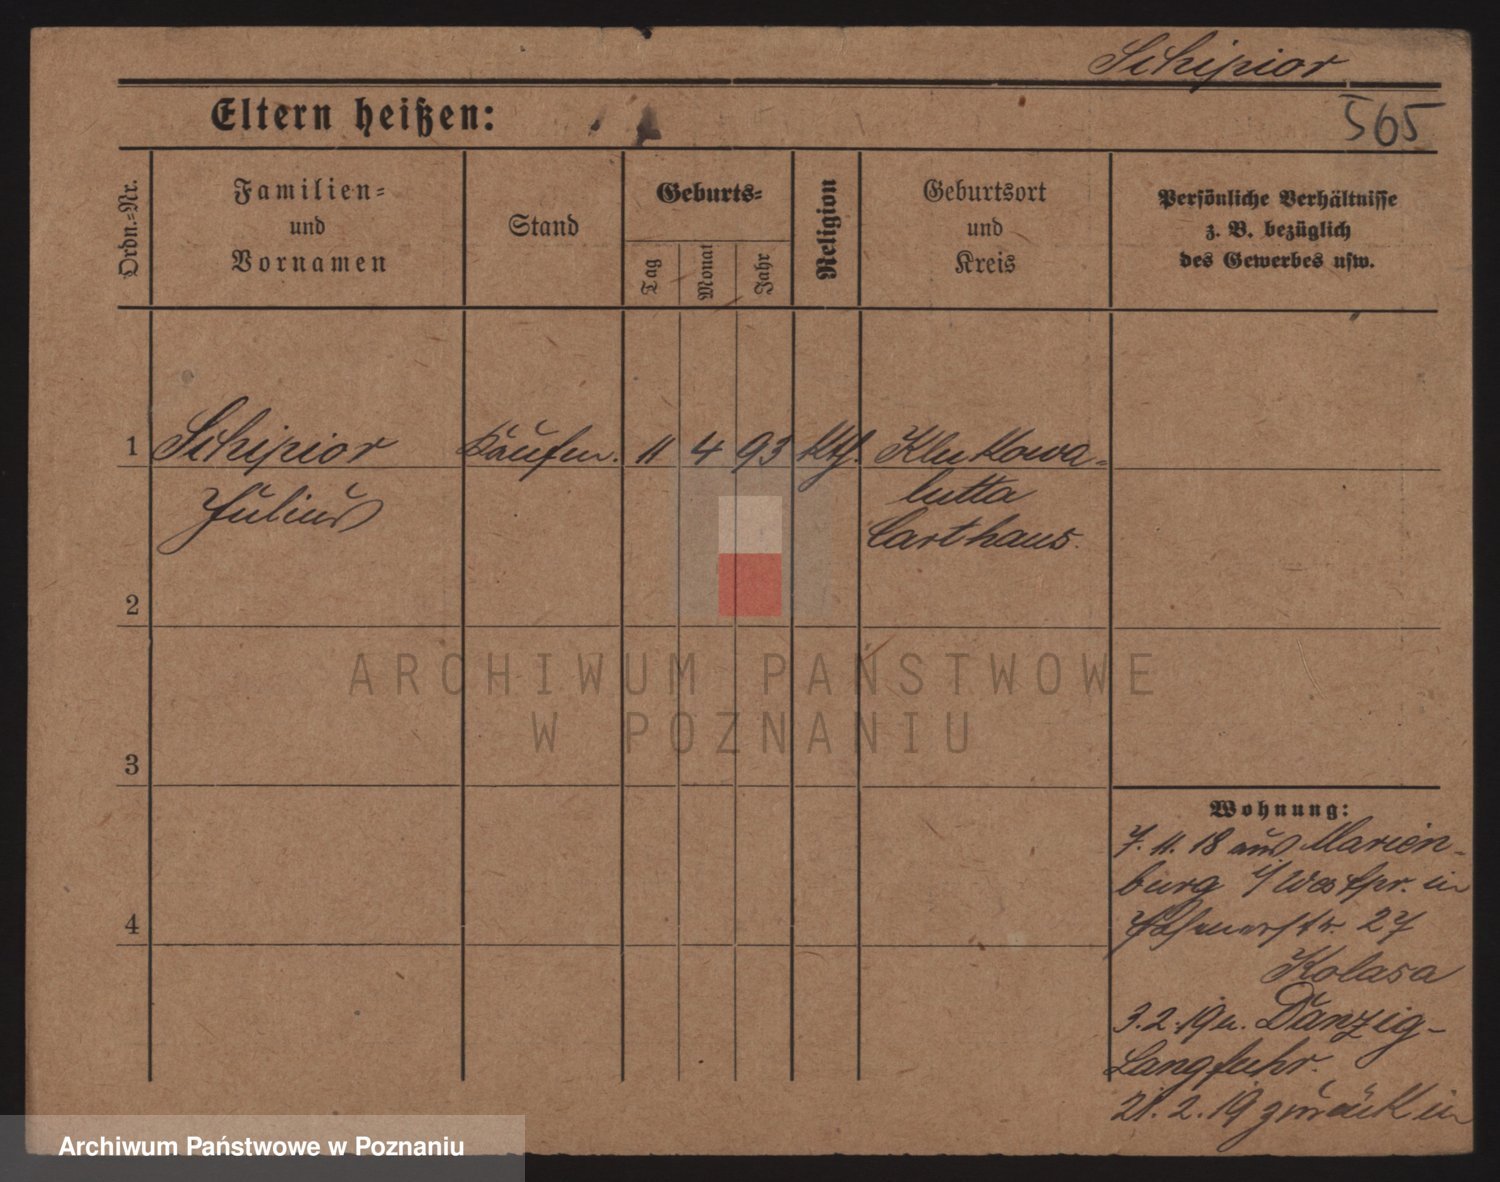 Schipior
Eltern heißen:
565
Ordn.=Nr.
Familien=
und
Vornamen
Stand
Geburts=
Tag
Monat
Jahr
Religion
Geburtsort
und
Kreis
Persönliche Verhältnisse
z. B. bezüglich
des Gewerbes usw.
1
Schipior
Kaufm.
11
4
93
kth.
Klukowa=
Julius
hutta
Carthaus.
2
ARCHIWUM PAŃSTWOWE
W POZNANIU
3
Wohnung:
7. 11. 18 aus Marien-
burg i/Westpr. in
27
4
Kolasa
3. 2. 19 n. Danzig-
Langfuhr.
21. 2. 19 zurück in
Archiwum Państwowe w Poznaniu